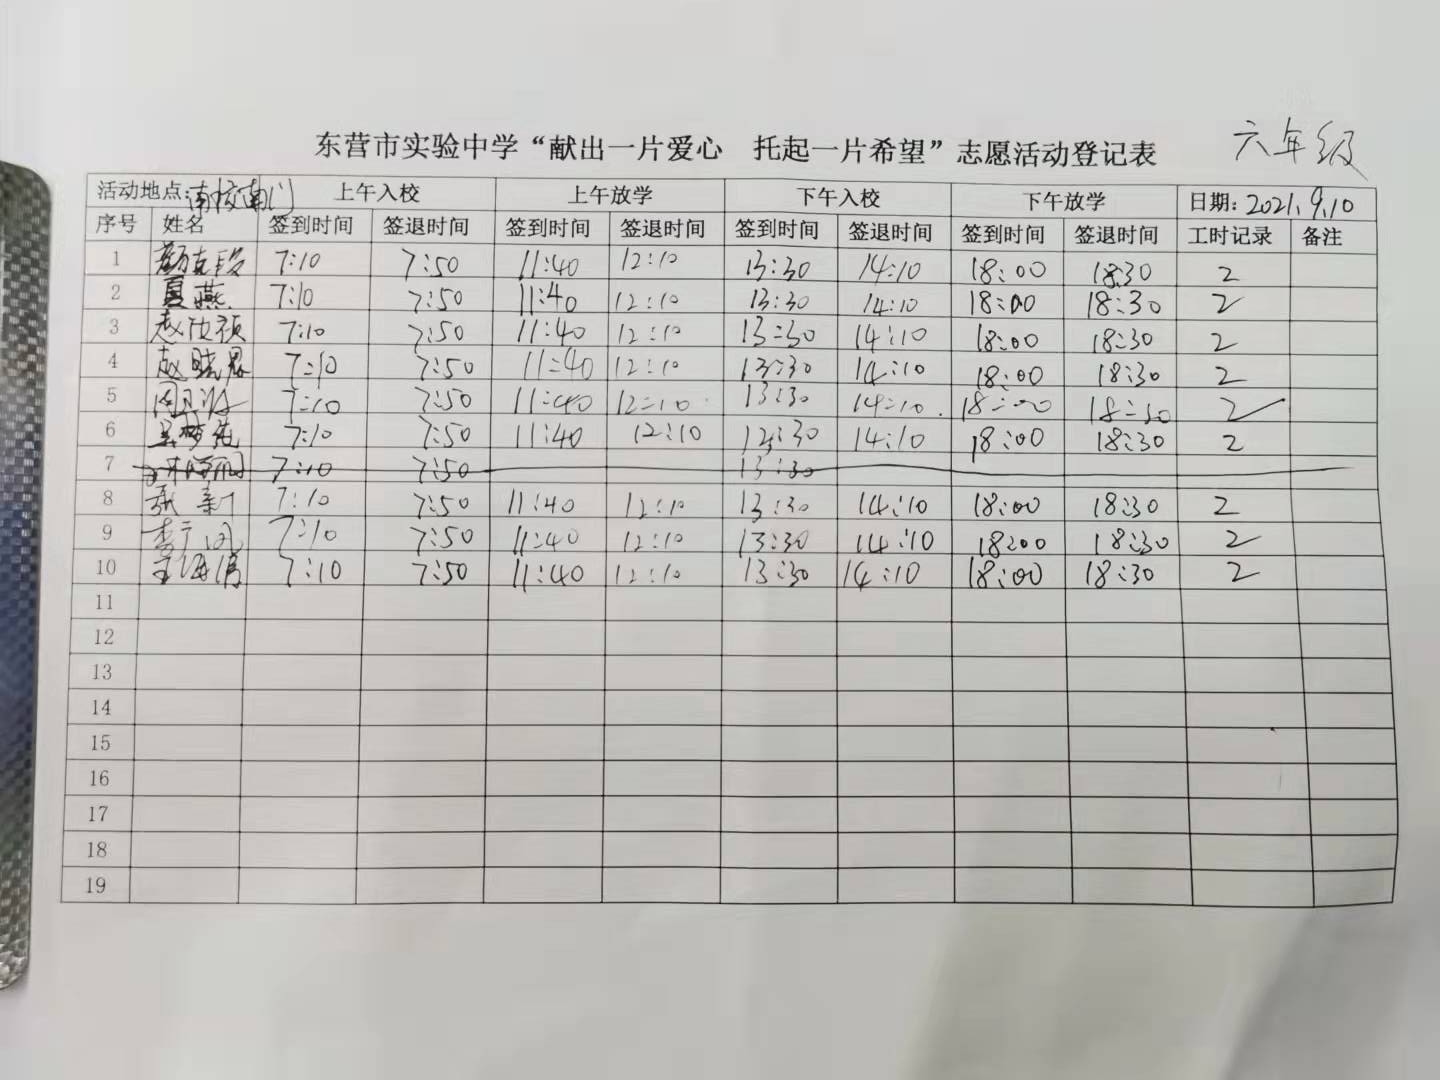 东营市实验中学“献出一片爱心 托起一片希望”志愿活动登记表 六年级
活动地点：南校南门 上午入校 上午放学 下午入校 下午放学 日期：2021.9.10
序号 姓名 签到时间 签退时间 签到时间 签退时间 签到时间 签退时间 签到时间 签退时间 工时记录 备注
1 7:10 7:50 11:40 12:10 13:30 14:10 18:00 18:30 2
2 夏燕 7:10 7:50 11:40 12:10 13:30 14:10 18:00 18:30 2
3 赵欣颖 7:10 7:50 11:40 12:10 13:30 14:10 18:00 18:30 2
4 赵晓恩 7:10 7:50 11:40 12:10 13:30 14:10 18:00 18:30 2
5 7:10 7:50 11:40 12:10 13:30 14:10 18:00 18:30 2
6 7:10 7:50 11:40 12:10 12:30 14:10 18:00 18:30 2
7 7:10 7:50 13:30
8 张新 7:10 7:50 11:40 12:10 13:30 14:10 18:00 18:30 2
9 7:10 7:50 11:40 12:10 13:30 14:10 18:00 18:30 2
10 王海倩 7:10 7:50 11:40 12:10 13:30 14:10 18:00 18:30 2
11
12
13
14
15
16
17
18
19